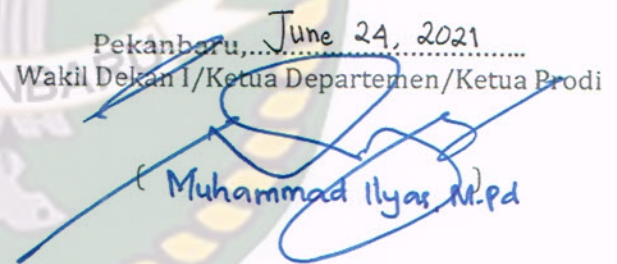 Pekanbaru,...June 24, 2021...
Wakil Dekan I/Ketua Departemen/Ketua Prodi
( Muhammad Ilyas, M.Pd )